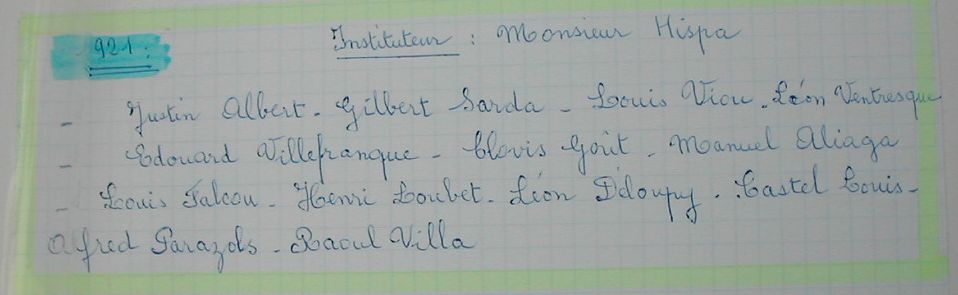 921: Instituteur : Monsieur Hispa
- Justin Albert - Gilbert Sarda - Louis Viou - Léon Ventresque
- Edouard Villefranque - Clovis Goût - Manuel Aliaga
- Louis Falcou - Henri Loubet - Léon Déloupy - Castel Louis -
Alfred Parazols - Raoul Villa